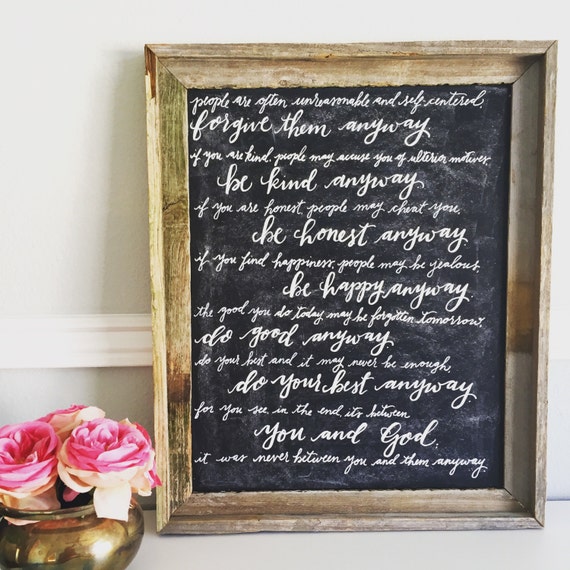 people are often unreasonable and self-centered,
forgive them anyway.
if you are kind, people may accuse you of ulterior motives.
be kind anyway
if you are honest, people may cheat you.
be honest anyway
if you find happiness, people may be jealous.
be happy anyway.
the good you do today may be forgotten tomorrow.
do good anyway
do your best and it may never be enough.
do your best anyway
for you see, in the end, its between
You and God.
it was never between you and them anyway.